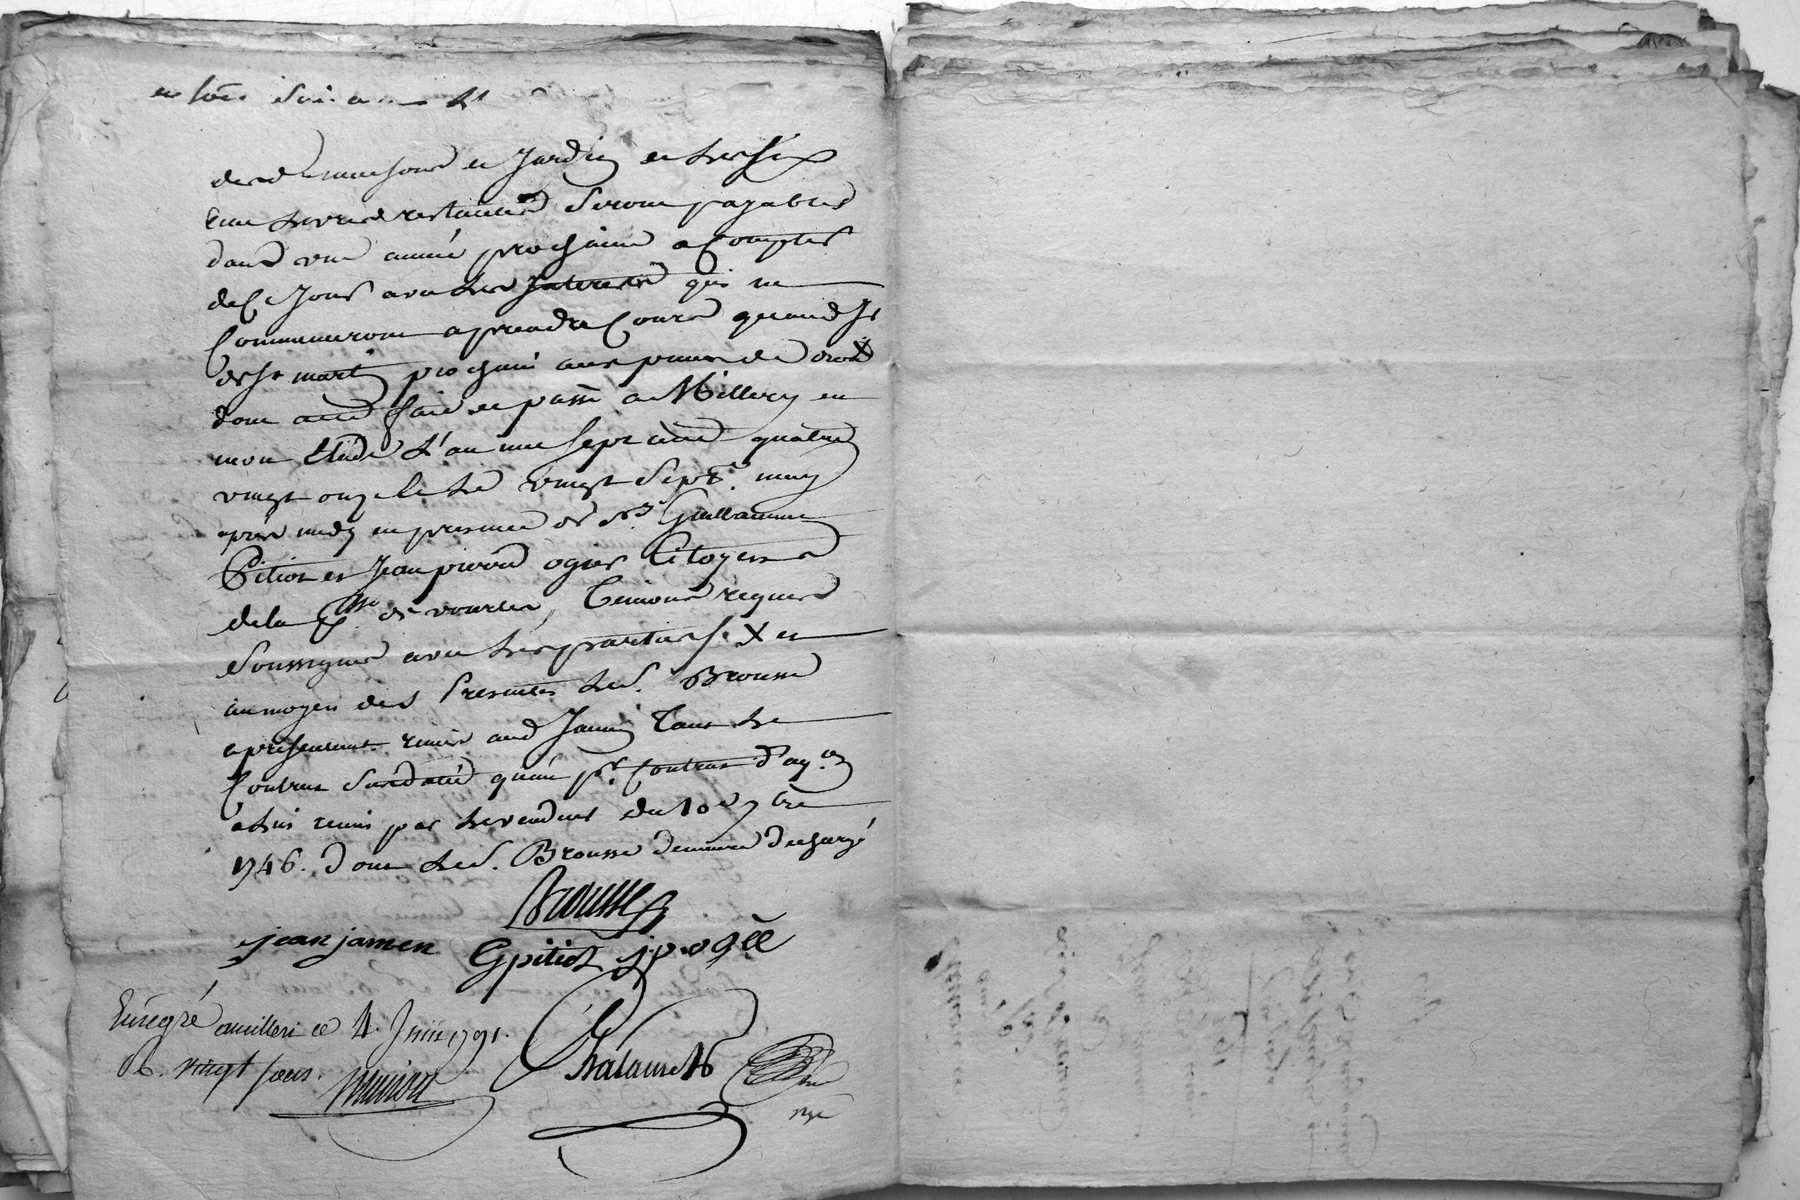 de maison et Jardin et les six
cent livres restantes seront payables
dans une année prochaine a Compter
de Ce Jour avec les Interests qui ne
Commenceront a prendre Cours qu'a la fs
de St martin prochain aux peines de droit
dont acte fait et passé a Millery en
mon Etude L'an mil sept cent quatre
vingt onze le vingt sept may
après midy en presence de Srs Guillaume
Pitiot et Jean pierre ogier Citoyens
de la psse de vourles, Temoins requis
Soussignés avec les parties X et
au moyen des Presentes led. Brousse
a presentement remis aud Jamen Tant le
Contrat susdatté qu'un pr. Contrat d'aq.on
a lui remis par le vendeur du 10e 7bre
1746. Dont led. Brousse demeure dechargé
Brousse
jean jamen Gpitiot j.p. ogié
Enregré a milleri ce 4 Juin 1791.
vingt sous.